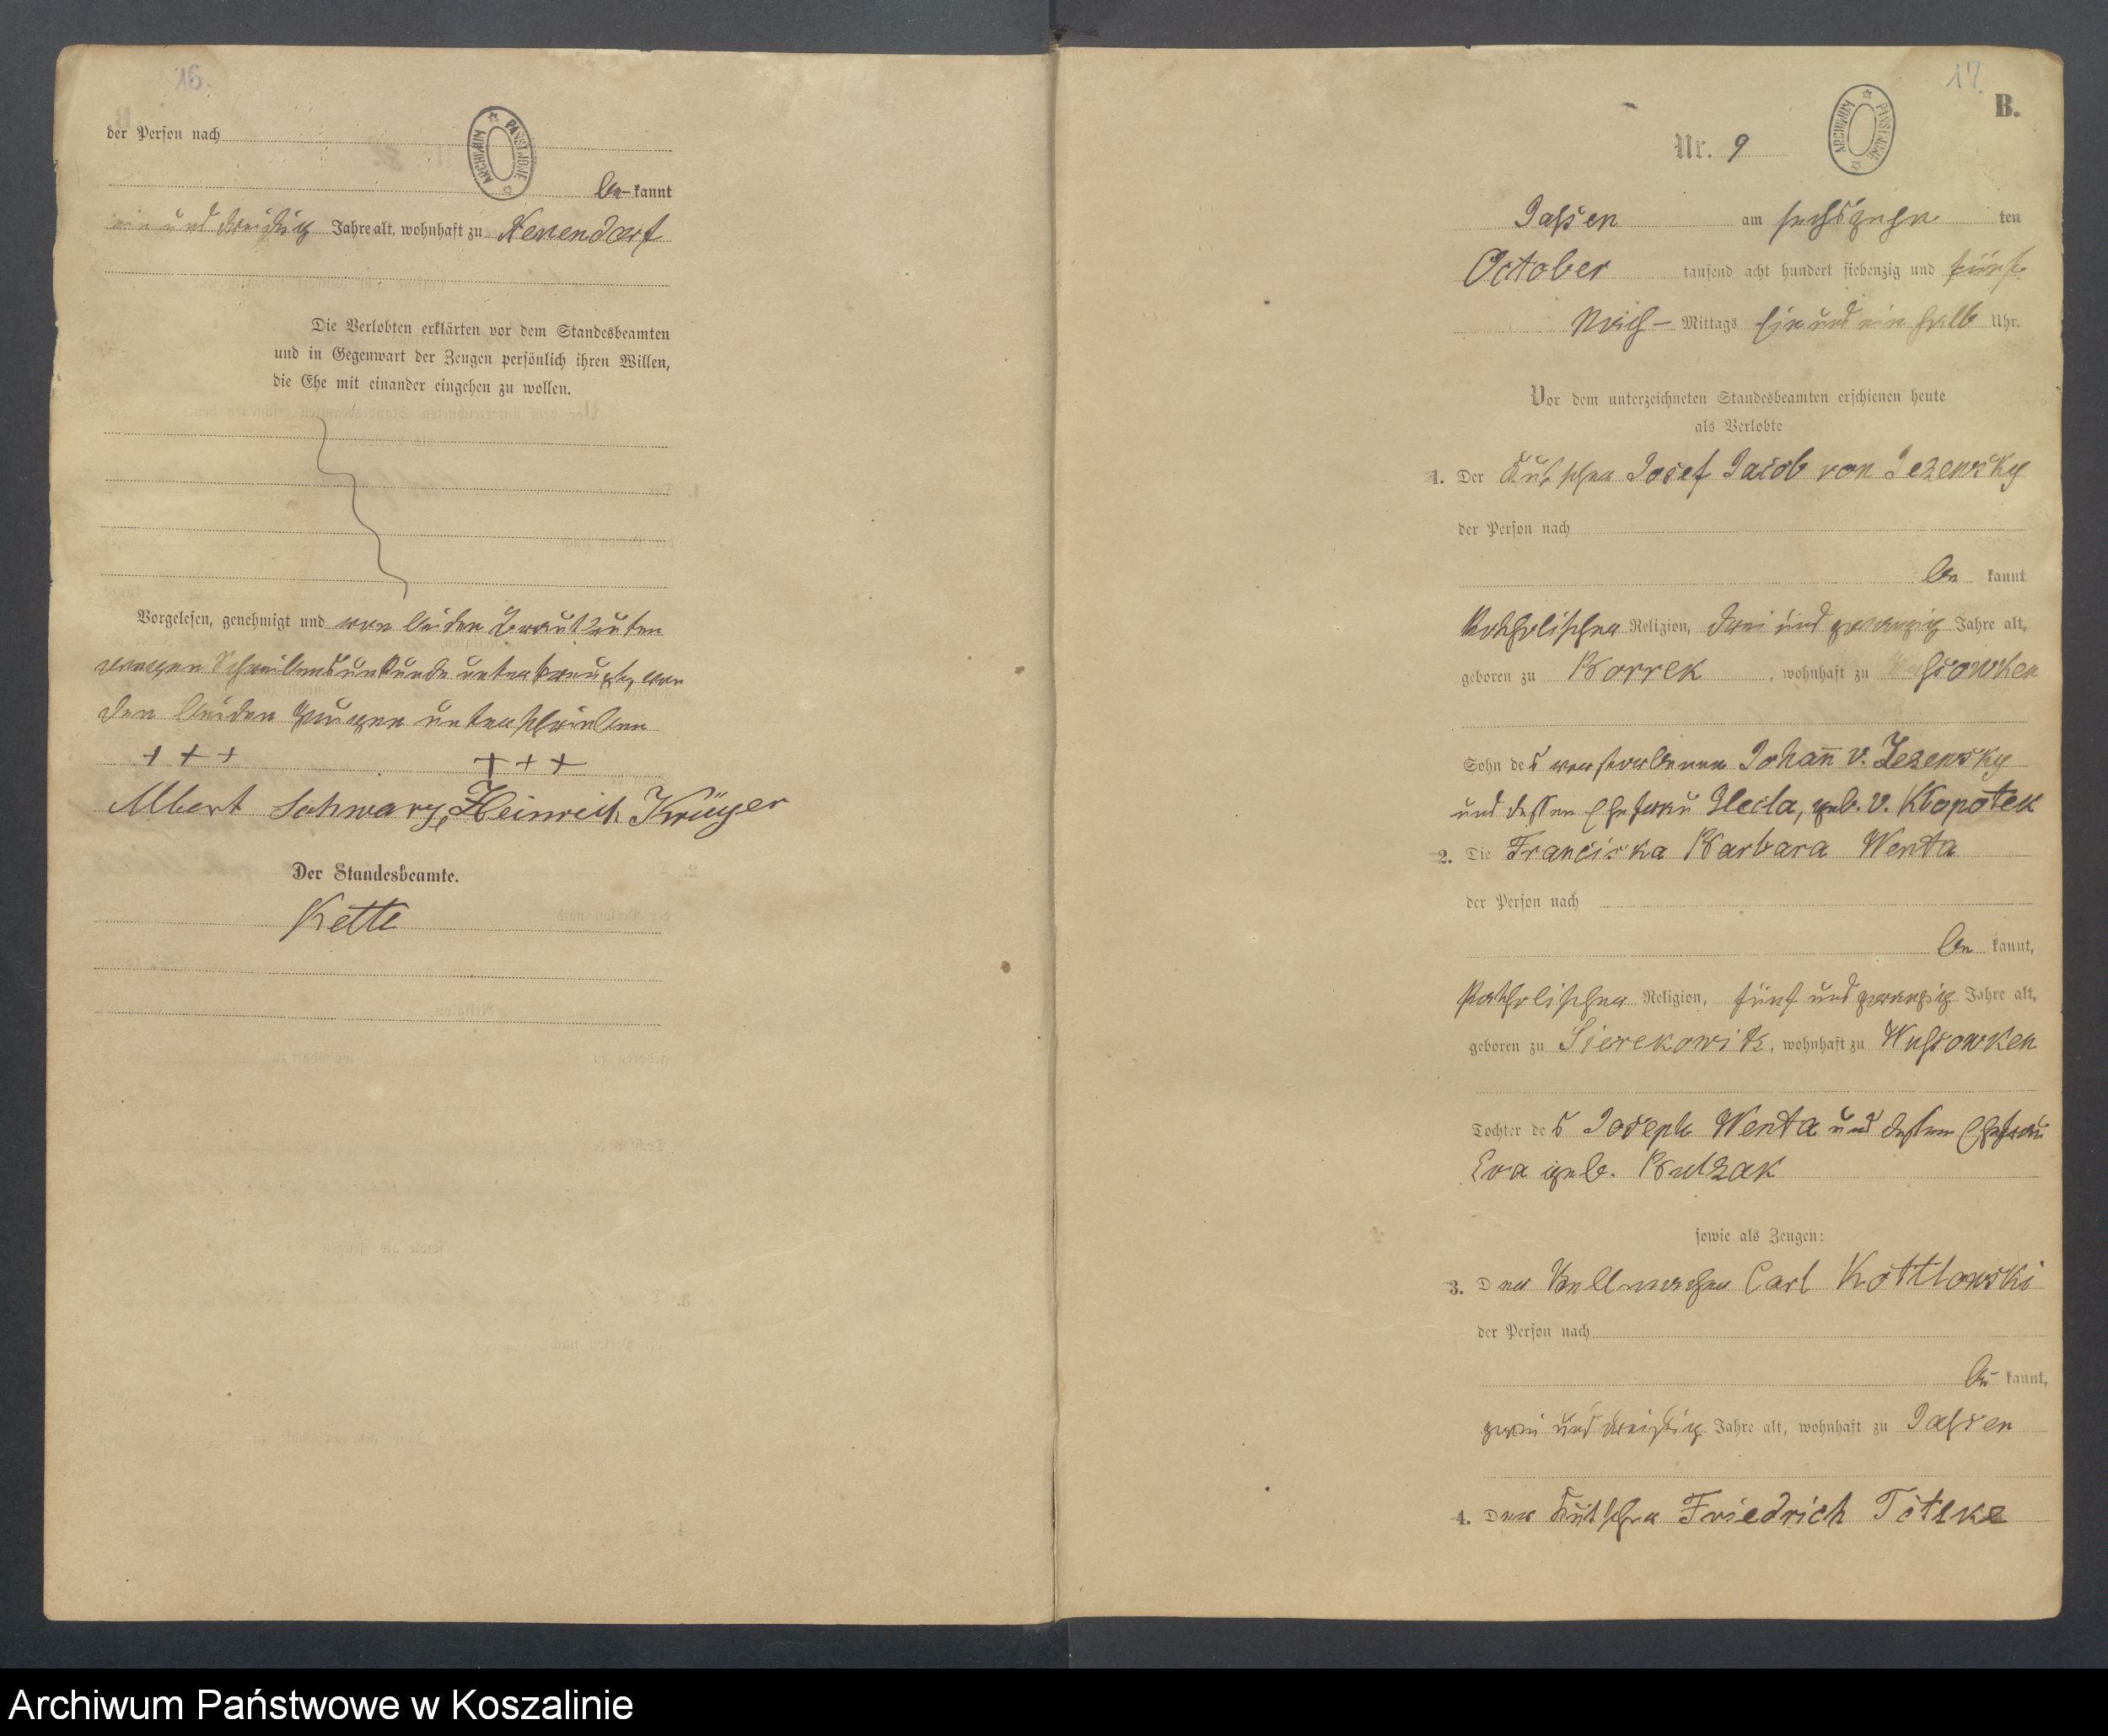 16.
der Person nach
ARCHIWUM PAŃSTWOWE
be-kannt
ein und dreißig Jahre alt, wohnhaft zu Neuendorf
Die Verlobten erklärten vor dem Standesbeamten
und in Gegenwart der Zeugen persönlich ihren Willen,
die Ehe mit einander eingehen zu wollen.
Vorgelesen, genehmigt und von beiden Brautleuten
wegen Schreibensunkunde unterkreuzt, von
den beiden Zeugen unterschrieben
+ + + + + +
Albert Schwarz, Heinrich Krüger
Der Standesbeamte.
Kette
17.
B.
ARCHIWUM PAŃSTWOWE
Nr. 9
Jassen am sechszehn ten
October tausend acht hundert siebenzig und fünf
Nach- Mittags ein und ein halb Uhr.
Vor dem unterzeichneten Standesbeamten erschienen heute
als Verlobte
1. Der Kutscher Josef Jacob von Jezewsky
der Person nach
be kannt
katholischer Religion, drei und zwanzig Jahre alt,
geboren zu Borrek, wohnhaft zu Wussowken
Sohn des verstorbenen Johann v. Jezewsky
und dessen Ehefrau Hecla, geb. v. Klopotek
2. Die Franciska Barbara Wenta
der Person nach
be kannt,
katholischer Religion, fünf und zwanzig Jahre alt,
geboren zu Sierekowitz, wohnhaft zu Wussowken
Tochter des Joseph Wenta und dessen Ehefrau
Eva geb. Bulzak
sowie als Zeugen:
3. Der Stellmacher Carl Kottlowski
der Person nach
be- kannt,
zwei und dreißig Jahre alt, wohnhaft zu Jassen
4. Der Kutscher Friedrich Tötzke
Archiwum Państwowe w Koszalinie